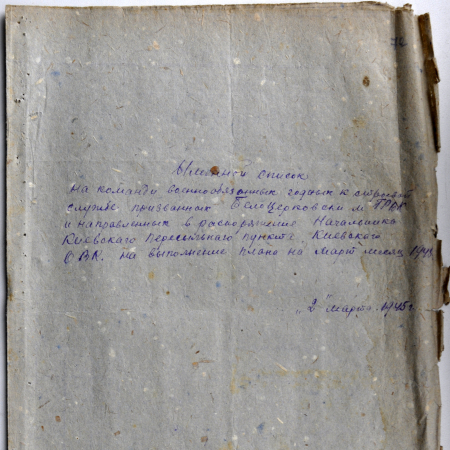 Именной список
на команду военнообязанных годных к строевой
службе призванных Белоцерковским ГРВК
и направленных в распоряжение Начальника
Киевского пересыльного пункта Киевского
ОВК. на выполнение плана на Март месяц
"2" марта 1945 г.